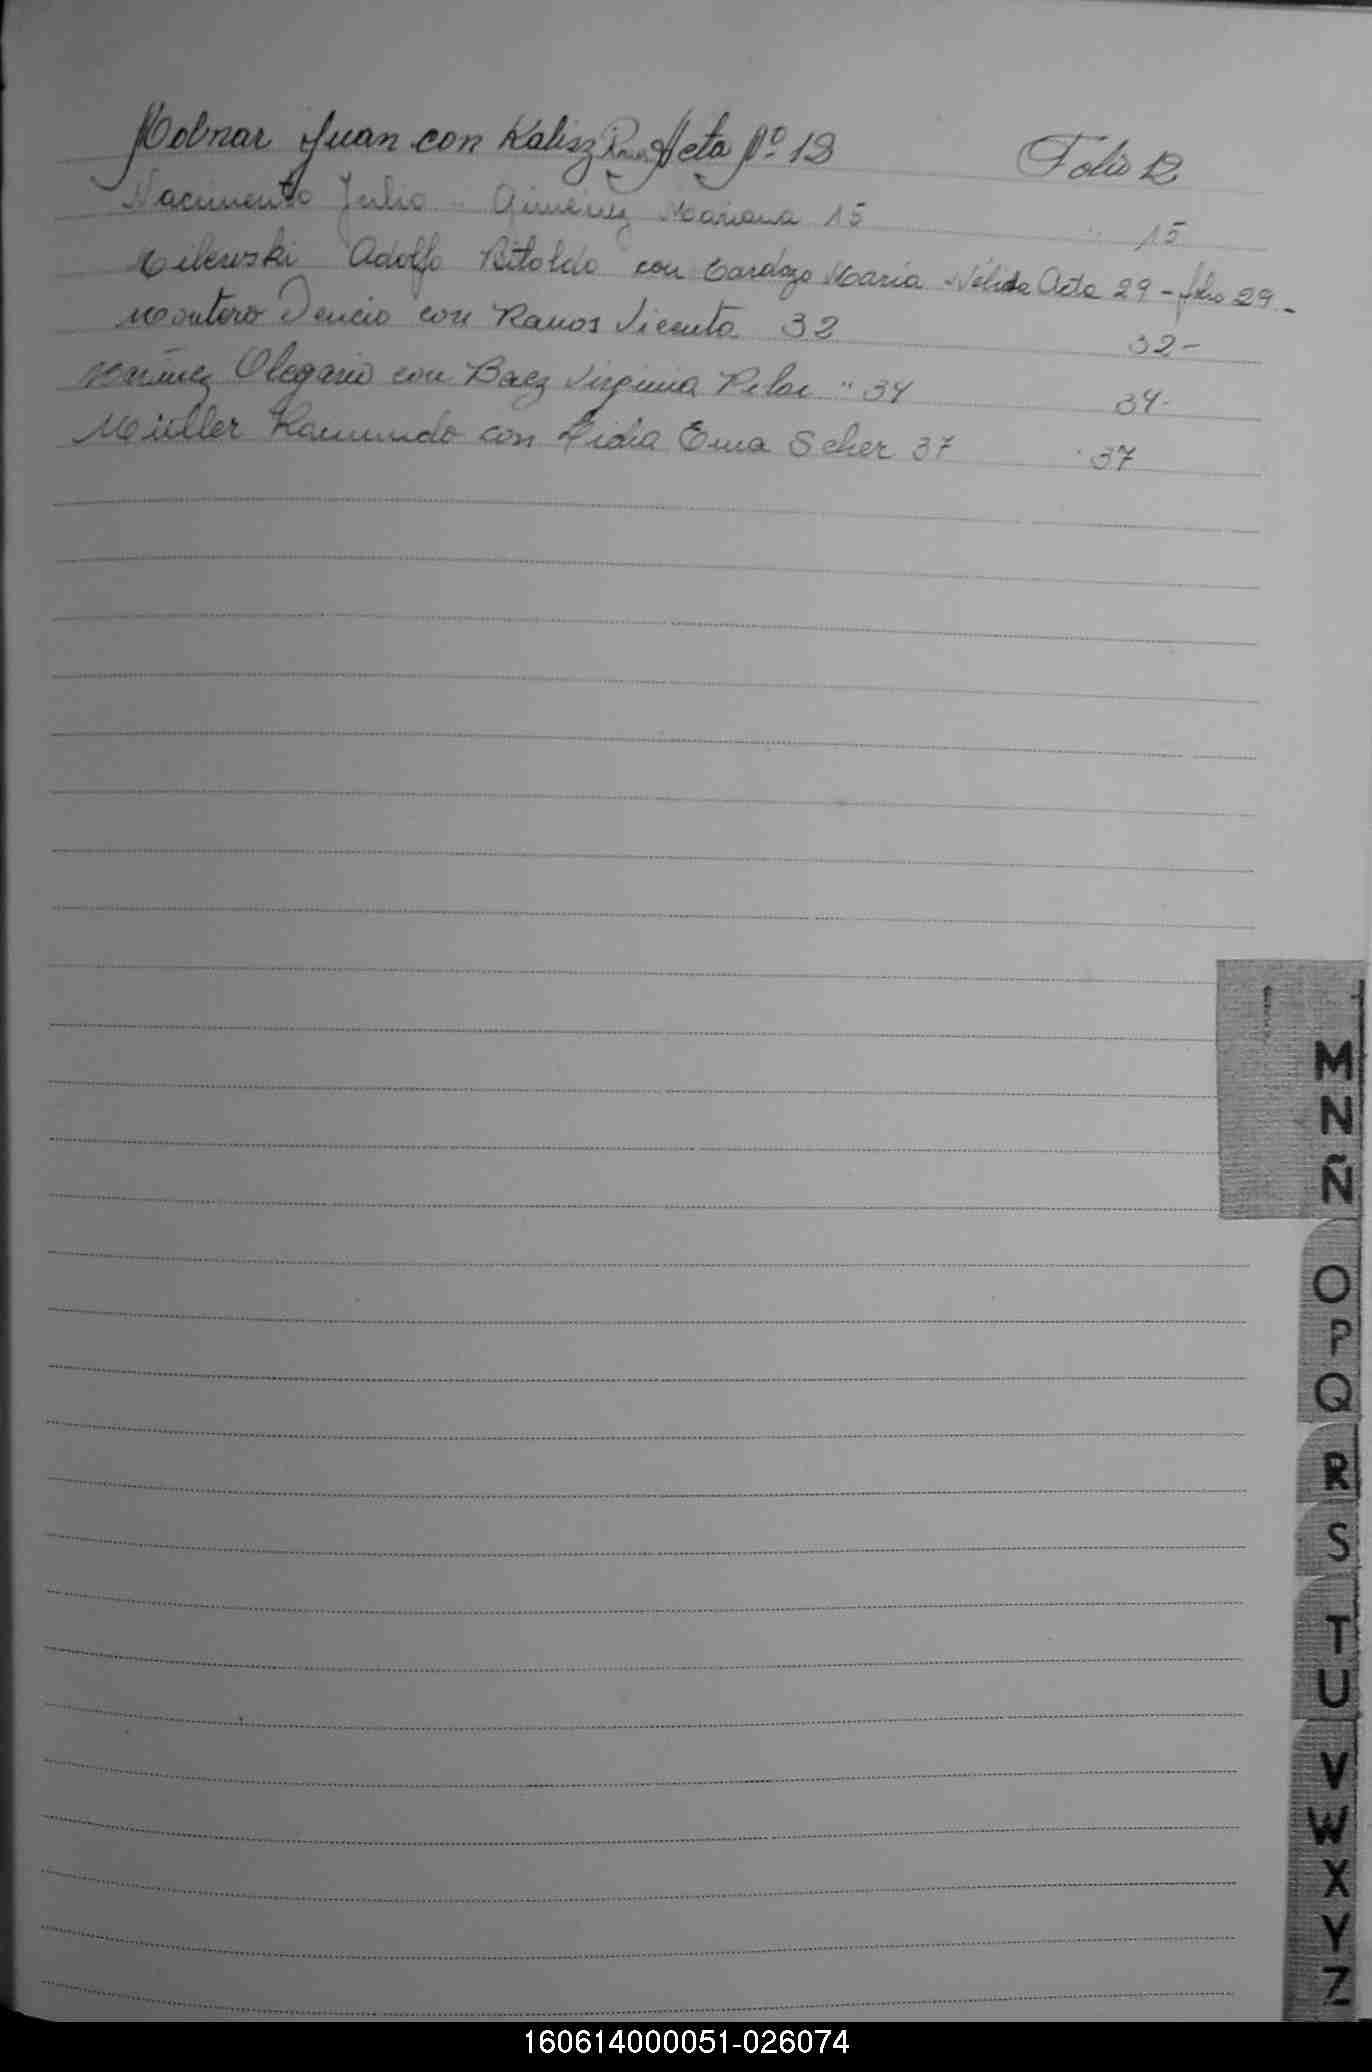 Molnar Juan con Kalisz Rosa Acta Nº 12 Folio 12
Nacimento Julio " Gimenez Mariana 15 " 15
Milewski Adolfo Bitoldo con Cardozo Maria Nélida Acta 29 - folio 29.-
Montero Dencio con Ramos Vicenta 32 32-
Olegario con Baez Virginia Pilar " 34 34-
Müller Raimundo con Lidia Ema Scher 37 " 37
M
N
Ñ
O
P
Q
R
S
T
U
V
W
X
Y
Z
160614000051-026074